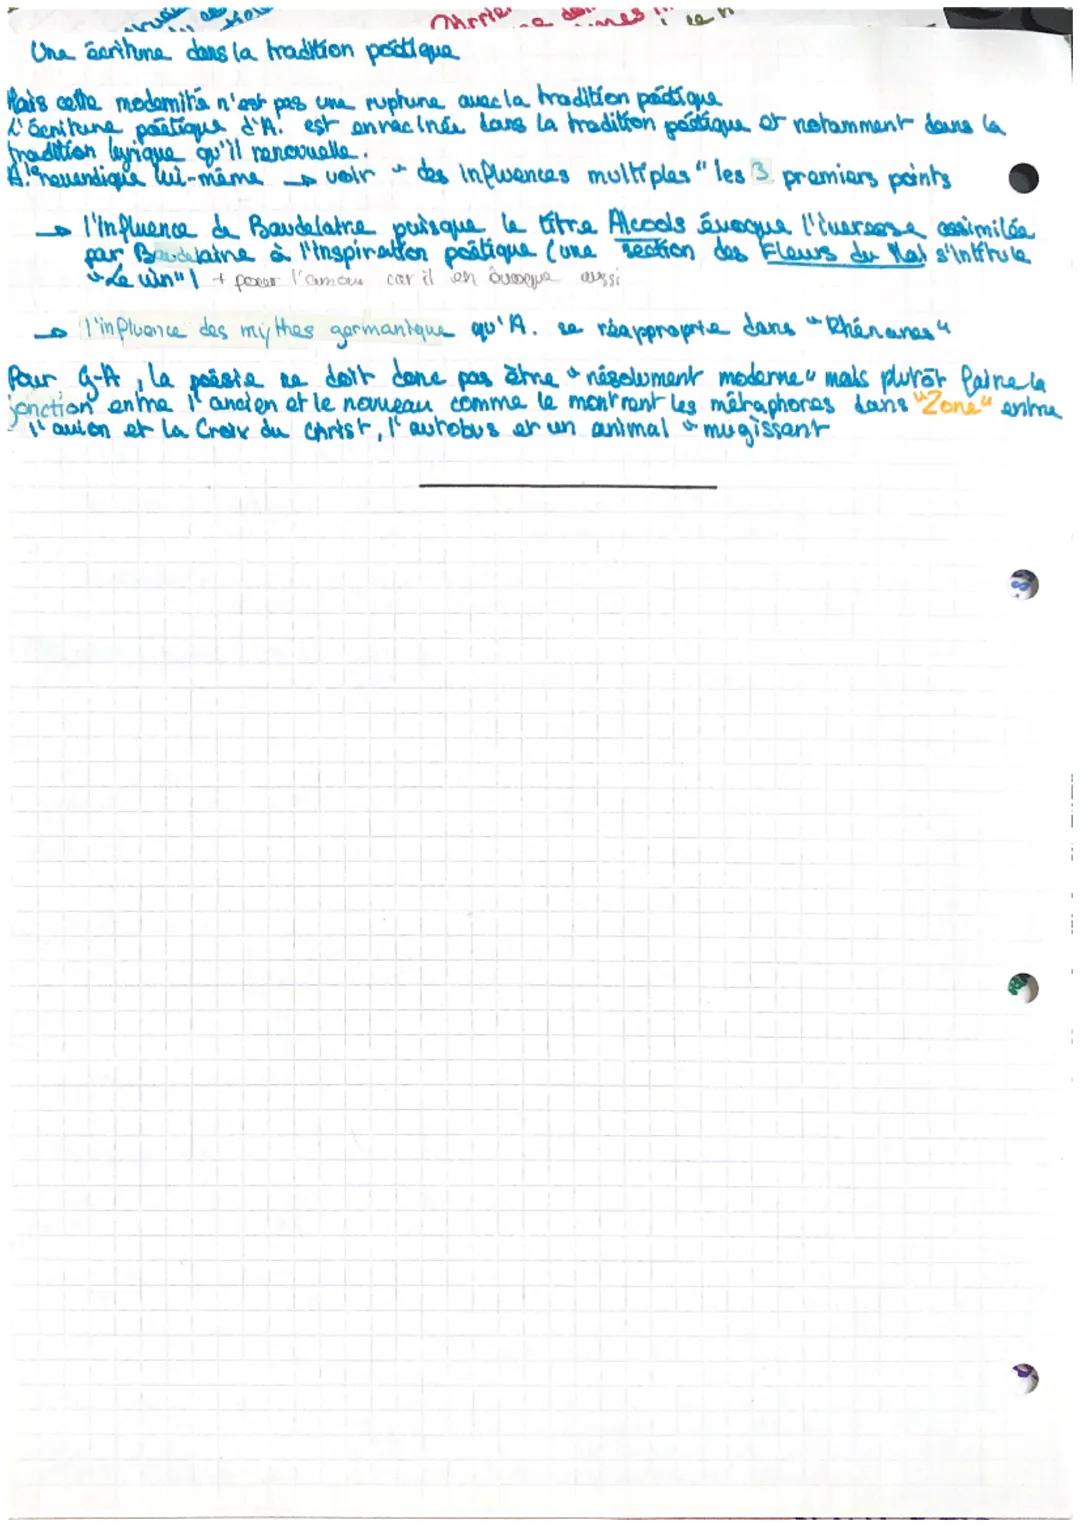 Une écriture dans la tradition poétique
Mais cette modernité n'est pas une rupture avec la tradition poétique
L'écriture poétique d'A. est enracinée dans la tradition poétique et notamment dans la
tradition lyrique qu'il renouvelle.
A. revendique lui-même → voir "des influences multiples" les 3 premiers points
→ l'influence de Baudelaire puisque le titre Alcools évoque l'ivresse assimilée
par Baudelaire à l'inspiration poétique (une section des Fleurs du Mal s'intitule
"Le vin") + pour l'amour car il en évoque aussi
→ l'influence des mythes germanique qu'A. se réapproprie dans "Rhénanes"
Pour G-A, la poésie ne doit donc pas être "résolument moderne" mais plutôt faire la
jonction entre l'ancien et le nouveau comme le montrent les métaphores dans "Zone" entre
l'avion et la Croix du Christ, l'autobus et un animal "mugissant